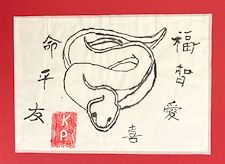 福
智
愛
喜
命
平
友
KP